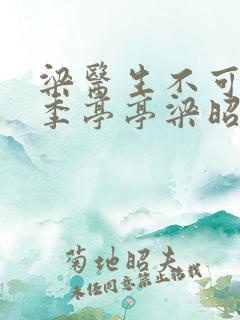 梁醫生不可
季亭亭梁昭
菊地昭夫
未经同意禁止转载